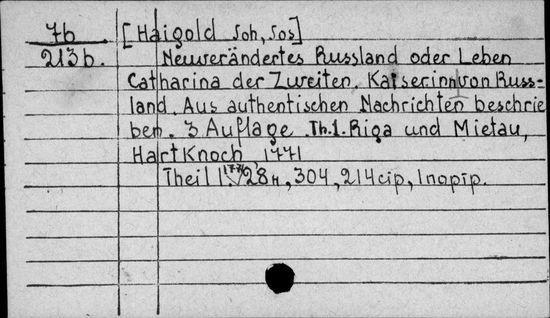 7b [Haigold Joh, Jos]
213b. Neuverändertes Russland oder Leben
Catharina der Zweiten, Kaiserinn von Russ-
land. Aus authentischen Nachrichten beschrie
ben. 3 Auflage. Th.1. Riga und Mietau,
HartKnoch, 1771
Theil 1. /28н, 304, 214 стр, 1 портр.